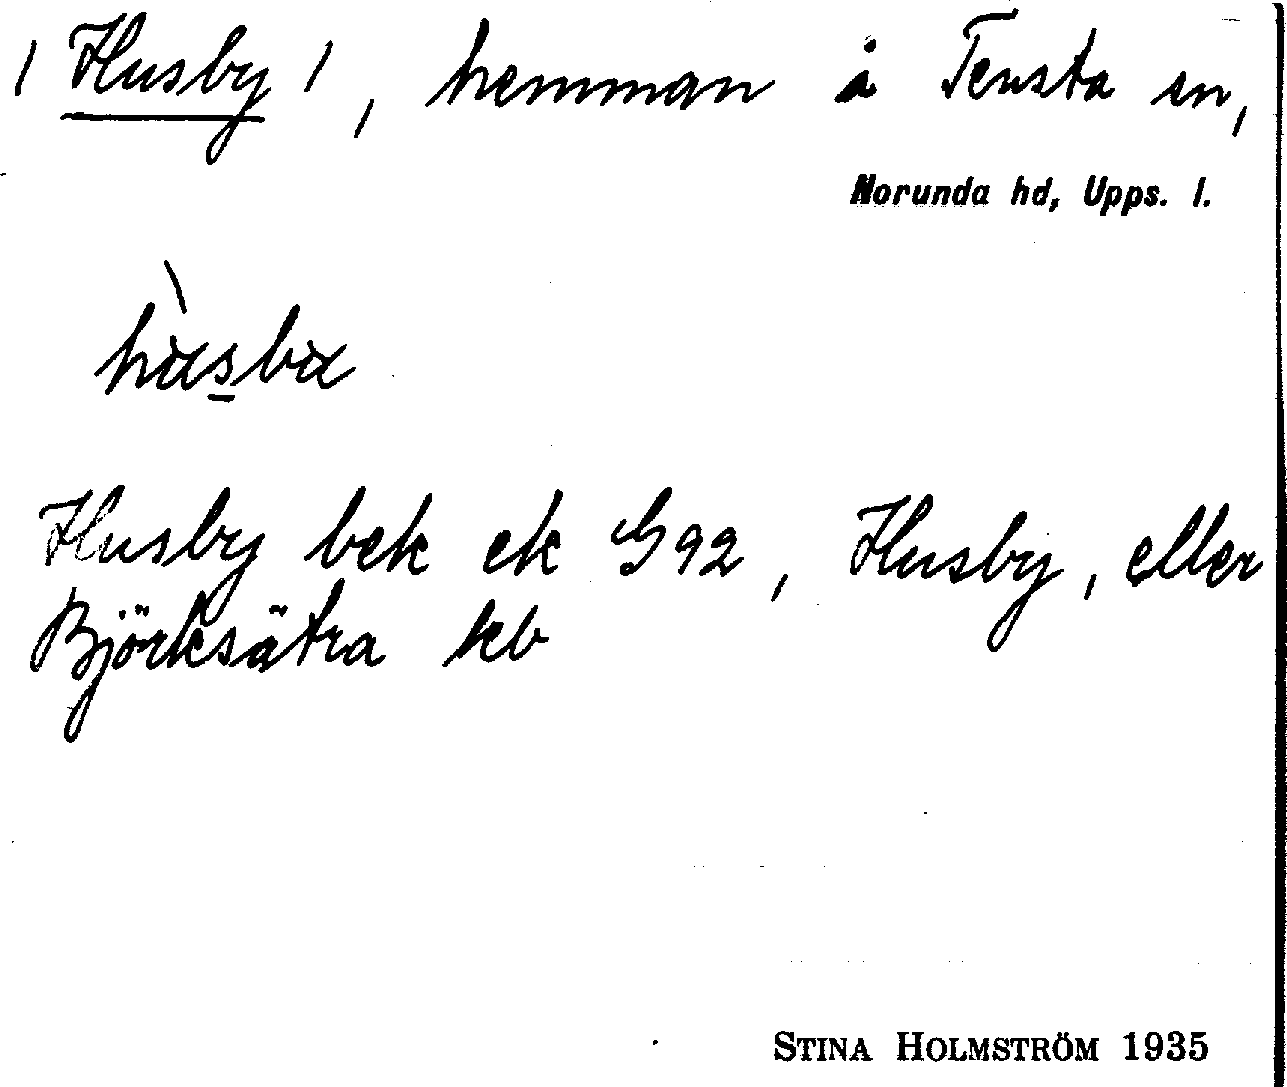 / Husby /, hemman å Tensta sn,
Norunda hd, Upps. l.
Husby bek ek G 92, Husby, eller
Björksätra kb
STINA HOLMSTRÖM 1935